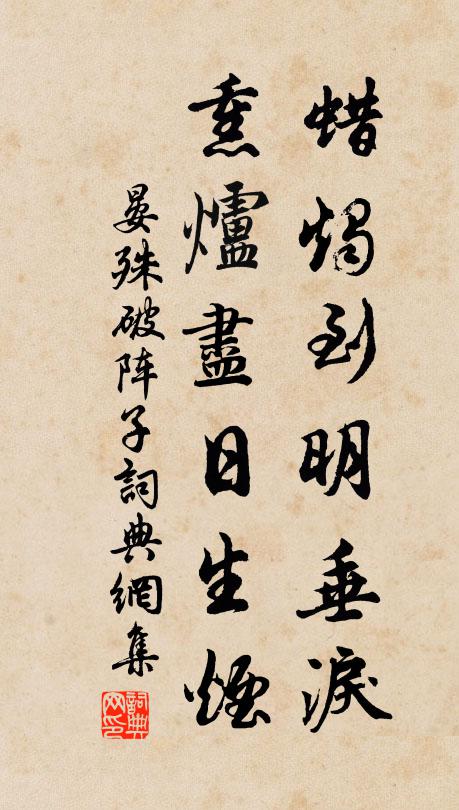 蜡燭到明垂淚
熏爐盡日生煙
晏殊破阵子詞典網集
詞典网印